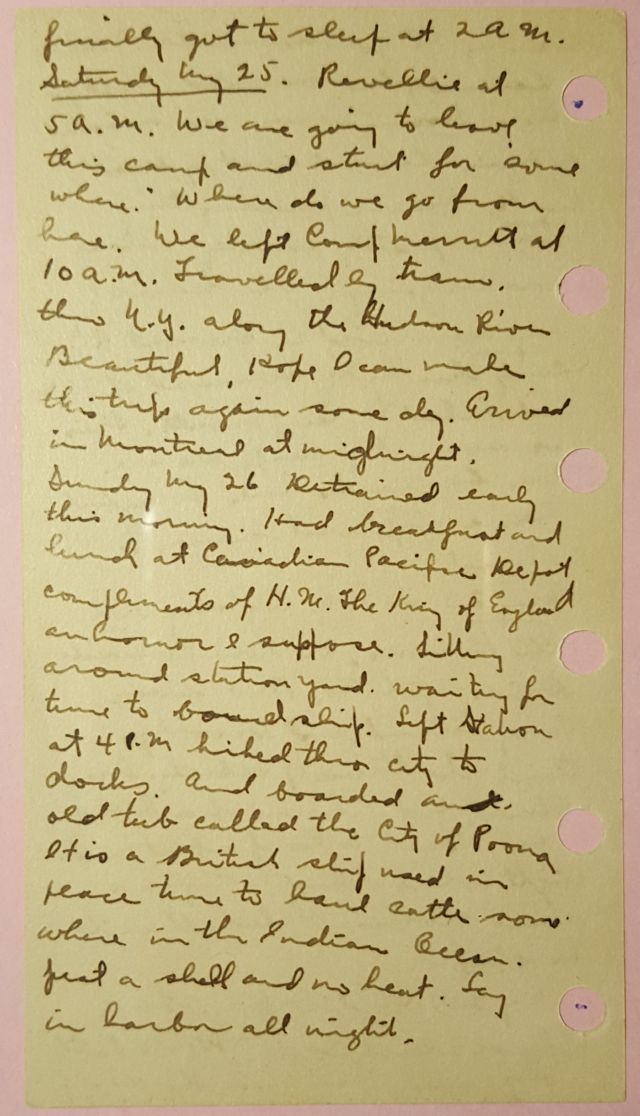 finally got to sleep at 2 A.M.
Saturday May 25. Revellie at
5 A.M. We are going to leave
this camp and start for "some
where." Where do we go from
here. We left Camp Merritt at
10 a.m. Travelled by train.
thru N.Y. along the Hudson River
Beautiful, Hope I can make
this trip again some day. Arrived
in Montreal at mignight.
Sunday May 26 Detrained early
this morning. Had breakfast and
lunch at Canadian Pacific Depot
compliments of H.M. The King of England
an honor I suppose. Sitting
around station yard. waiting for
time to board ship. Left Station
at 4 P.M hiked thru city to
docks. And boarded an
old tub called the City of Poona
It is a British ship used in
peace time to haul cattle some
where in the Indian Ocean.
Just a shell and no heat. Lay
in harbor all night.